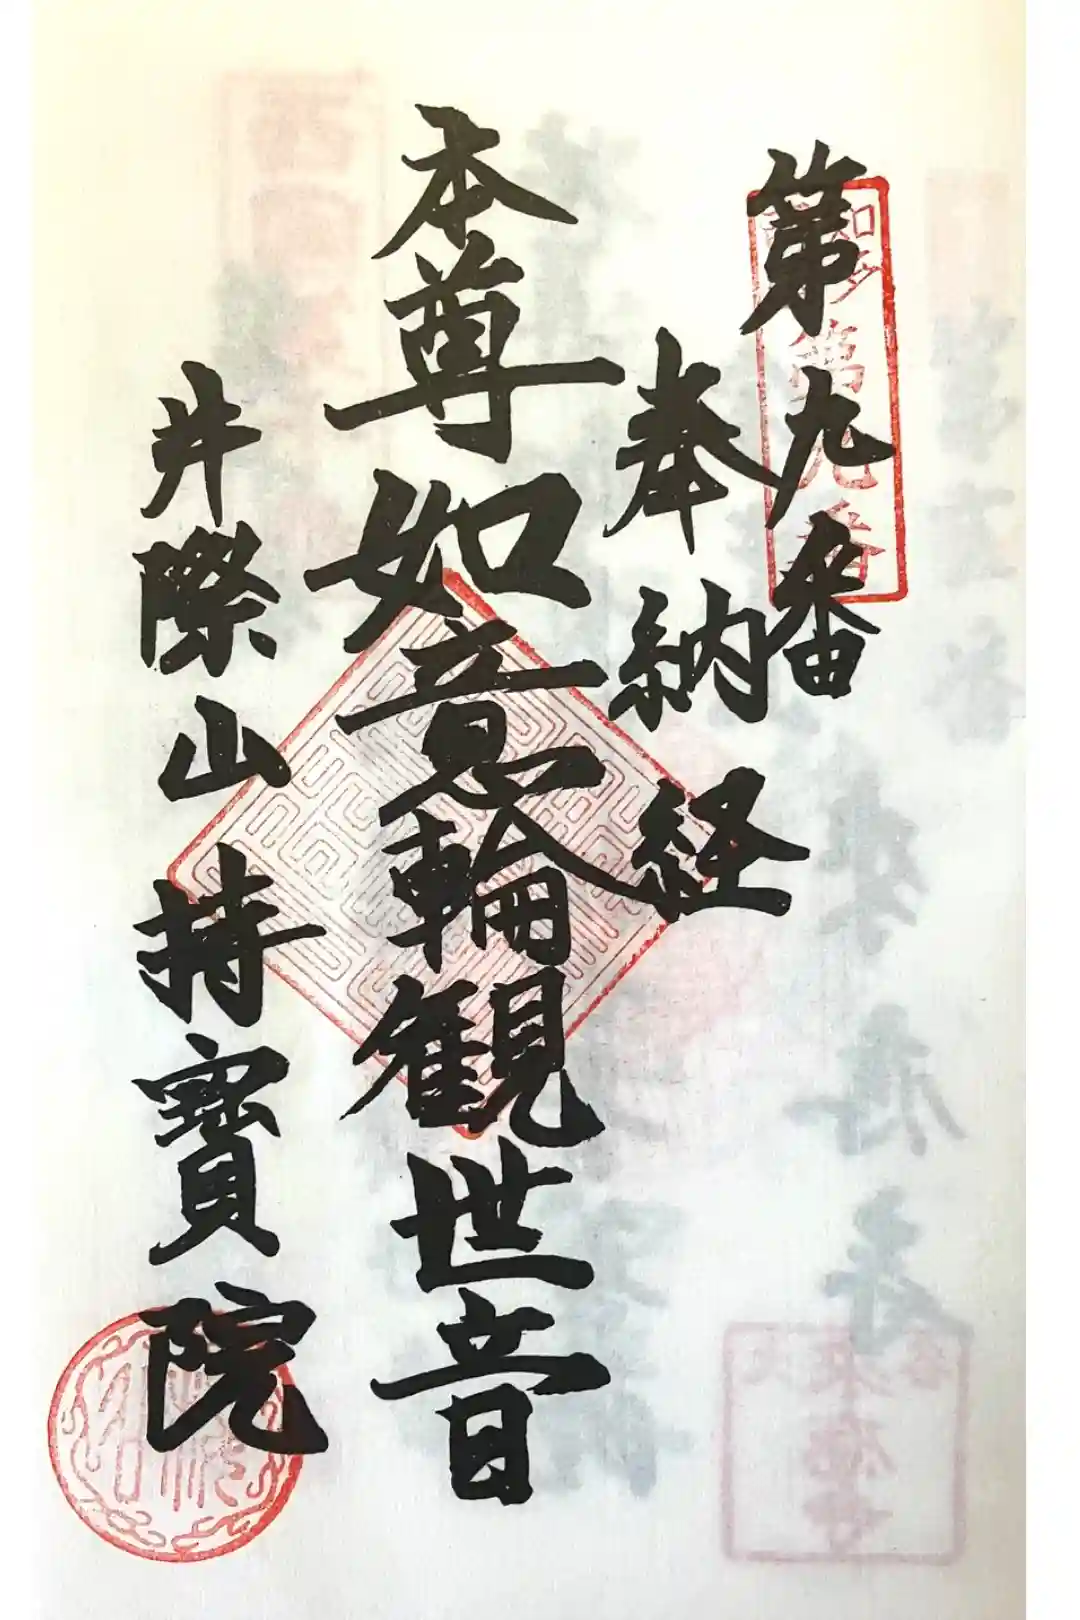 第九番
奉納経
本尊如意輪観世音
井際山持寳院
第九番